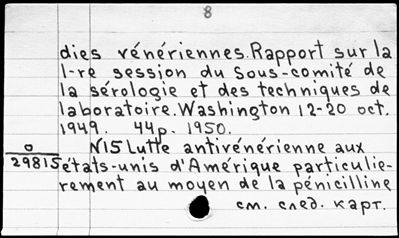 8
dies vénériennes. Rapport sur la
1-re session du Sous-comité de
la sérologie et des techniques de
laboratoire. Washington 12-20 oct.
1949. 44p. 1950.
0
29815
N15 Lutte antivénérienne aux
états-unis d'Amérique particulie-
rement au moyen de la pénicilline
см. след. карт.